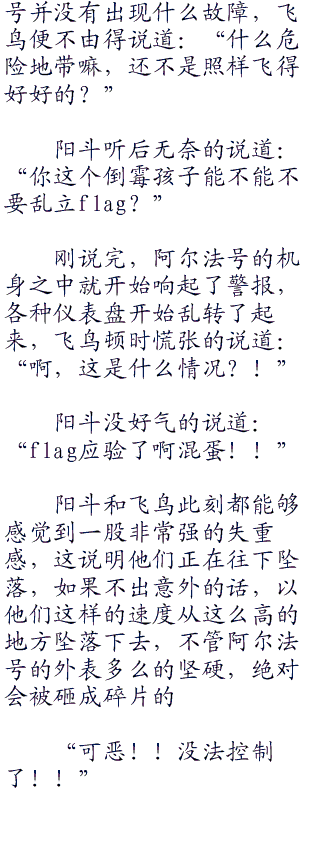 号并没有出现什么故障，飞
鸟便不由得说道：“什么危
险地带嘛，还不是照样飞得
好好的？”
阳斗听后无奈的说道：
“你这个倒霉孩子能不能不
要乱立flag？”
刚说完，阿尔法号的机
身之中就开始响起了警报，
各种仪表盘开始乱转了起
来，飞鸟顿时慌张的说道：
“啊，这是什么情况？！”
阳斗没好气的说道：
“flag应验了啊混蛋！！”
阳斗和飞鸟此刻都能够
感觉到一股非常强的失重
感，这说明他们正在往下坠
落，如果不出意外的话，以
他们这样的速度从这么高的
地方坠落下去，不管阿尔法
号的外表多么的坚硬，绝对
会被砸成碎片的
“可恶！！没法控制
了！！”